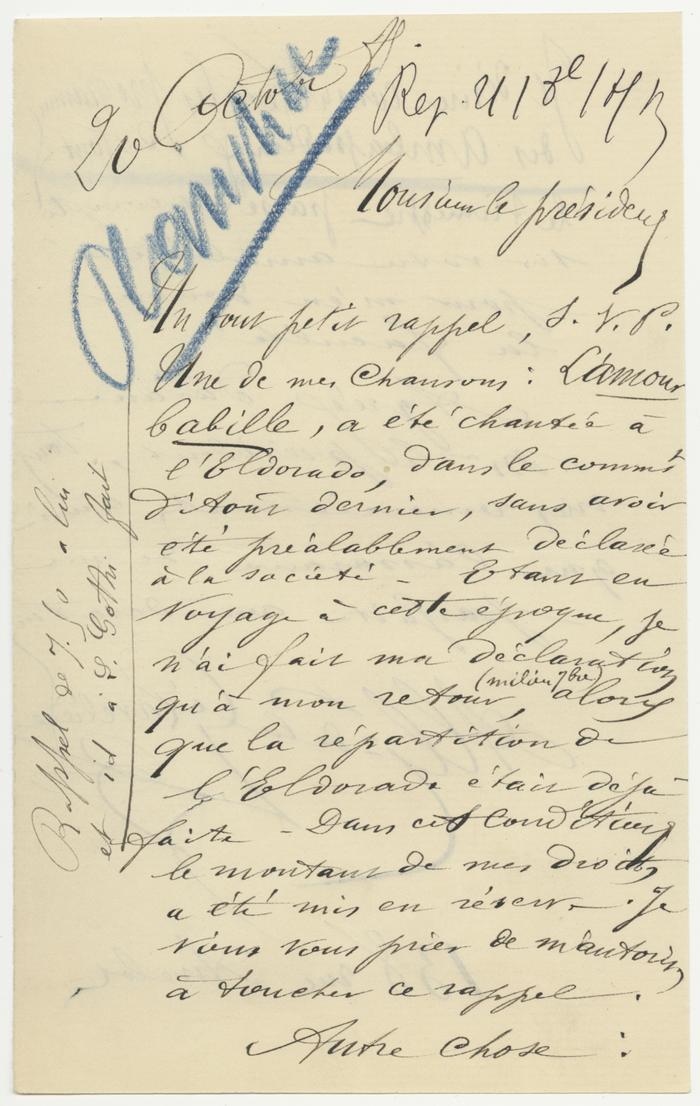 20 Octobre
Rep. 21 / 8e /
Monsieur le président
Un tout petit rappel, S. V. P.
Une de mes Chansons : L'amour
babille, a été chantée à
l'Eldorado, dans le commt
d'Août dernier, sans avoir
été préalablement déclarée
à la société — Etant en
voyage à cette époque, je
n'ai fait ma déclaration
(milieu 7bre)
qu'à mon retour, alors
que la répartition de
l'Eldorado était déjà
faite — Dans ces conditions
le montant de mes droits
a été mis en réserve — . Je
viens vous prier de m'autoriser
à toucher ce rappel .
Autre chose :
Rappel de 7.50 a lui
et id à L. Gothi fait